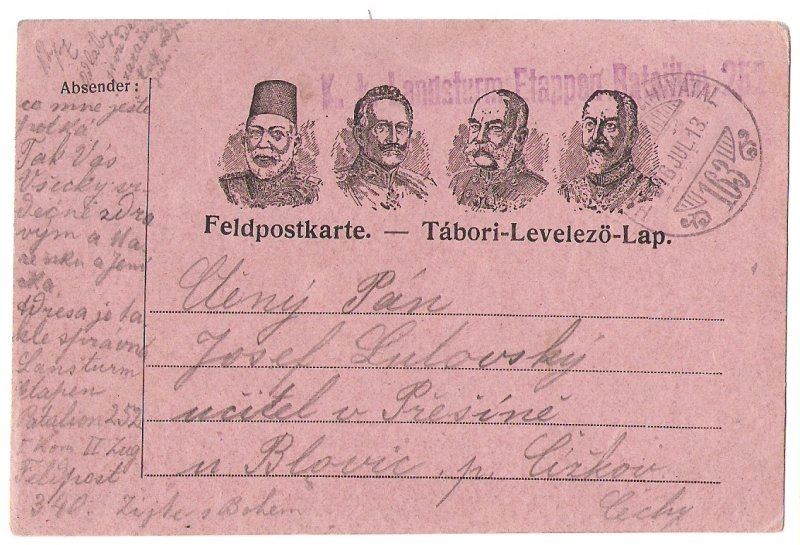 Absender:
K. k. Landsturm-Etappen-Bataillon 252
HIVATAL
JUL. 13
163
Feldpostkarte. — Tábori-Levelező-Lap.
Ctěný Pán
Josef Lutovský
učitel v Přešíně
u Blovic, p. Čížkov
Čechy
co mne ještě
potká
Tak Vás
Všecky sr-
dečně zdra
vým a Ma
řenku a Jení
čka
Adresa je ta
kle správná
Lansturm
Etapen
Batalion 252
Kom II Zug
Feldpost
340. Zijte s Bohem